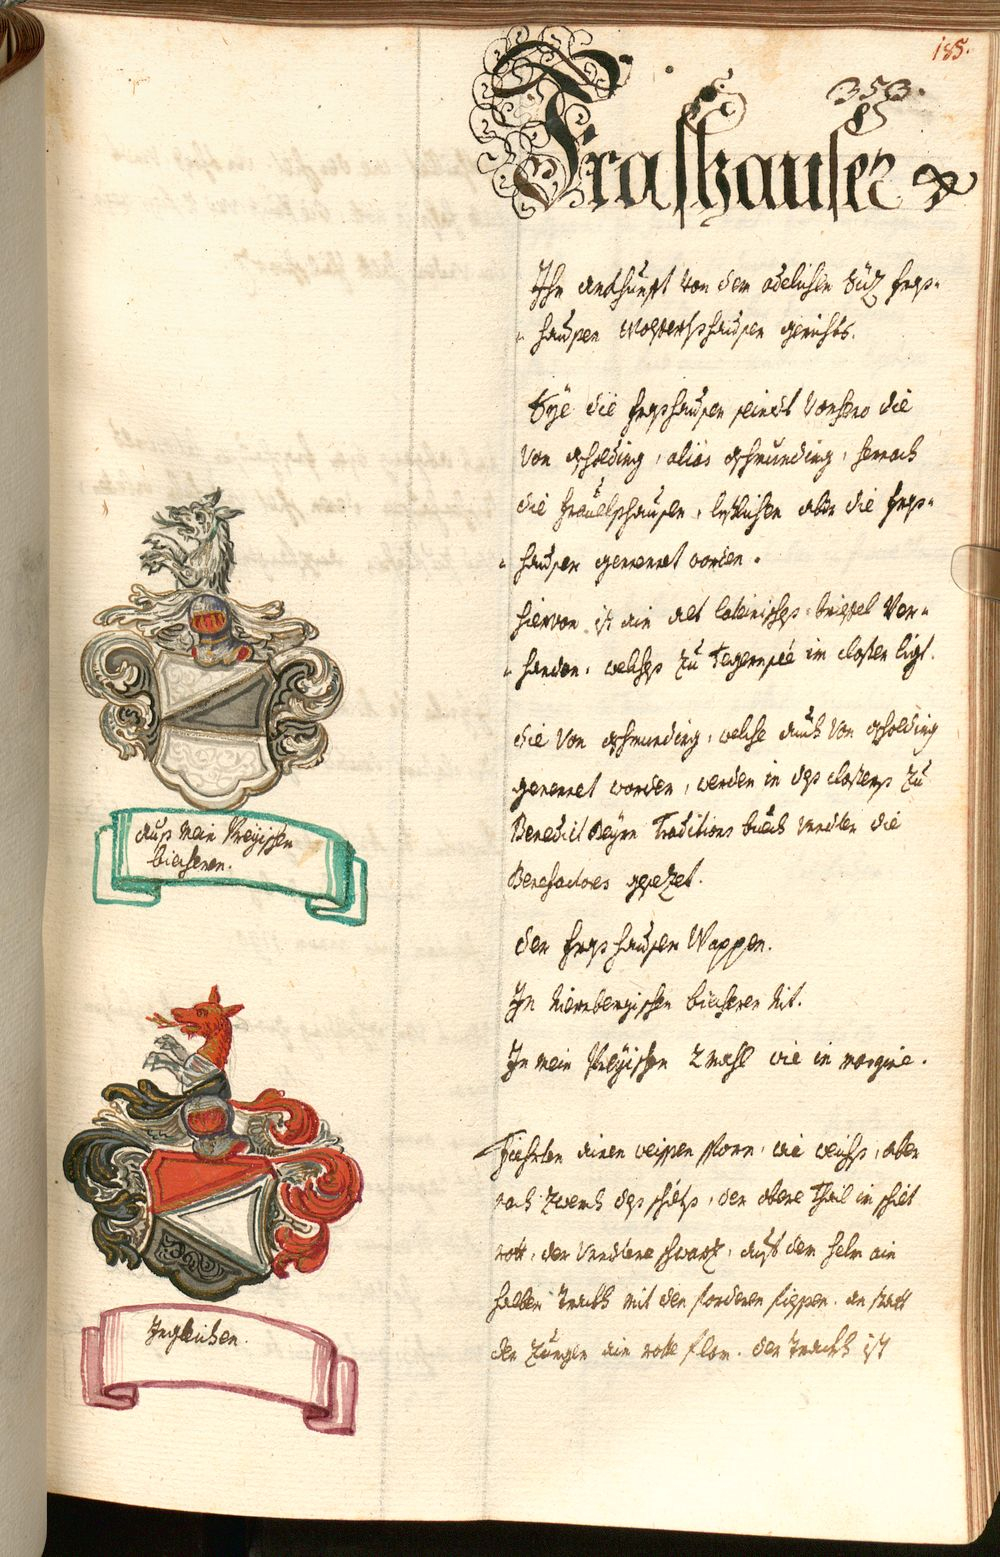 185.
353.
Frashauser
Ihr ankhunft von dem adelichen Süz Fras-
hausen Wolfertshauser gerichts.
Sye die Frashauser seindt vorhero die
von Ascholding, alias Aschmunding, hernach
die Frauelshauser, lestlichen aber die Fras-
hauser genennet worden.
hiervon ist ain alt lateinisches briefel vor-
handen, welches zu Tegernseé im closter ligt.
die von Aschmunding, welche auch von Ascholding
genennet worden, werden in des closters zu
Benedict Beyrn Traditions buech under die
Benefactores gesezet.
der Frashauser Wappen.
In Niernbergischen biecheren nit.
In mein Preyischen 2 mahl wie in margine.
Fiehrten ainen weissen Storn, wie weichs, aber
nach zwerch des schilts, der obere Theil im schilt
rott, der undtere schwarz, auf dem helm ain
halben Trackh mit den fordern fiessen. an statt
der Zungen ain rotte flam. der Trackh ist
Aus mein Preyischen
biecheren.
Ingleichen.